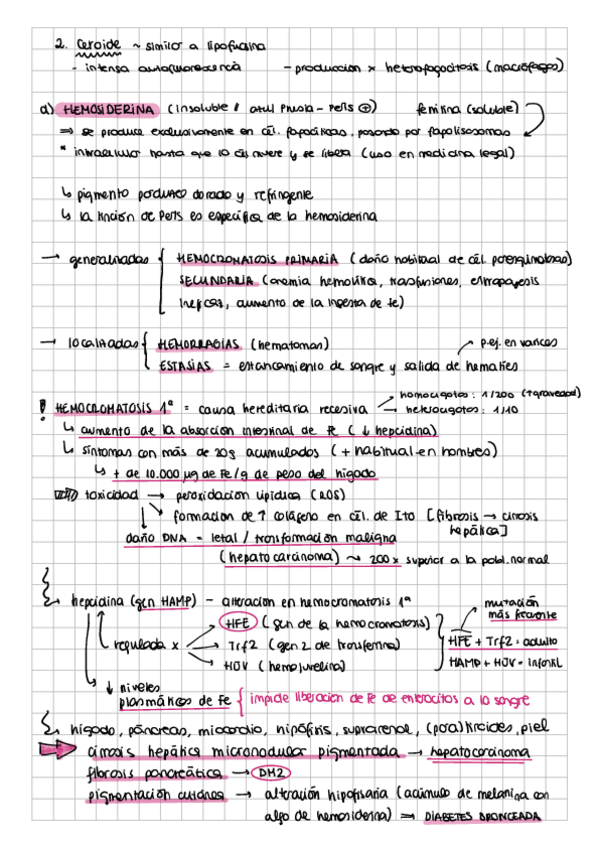 2. Ceroide ~ similar a lipofucsina
- intensa autofluorescencia - produccion x heterofagocitosis (macrofagos)
d) HEMOSIDERINA (insoluble / azul Prusia - Perls ⊕) ferritina (soluble)
⇒ se produce exclusivamente en cél. fagocíticas, pasando por fagolisosomas
* intracelular hasta que la cél muere y se libera (uso en medicina legal)
↳ pigmento parduzco dorado y refringente
↳ la tinción de Perls es específica de la hemosiderina
→ generalizadas { HEMOCROMATOSIS PRIMARIA (daño habitual de cél. parenquimatosas)
SECUNDARIA (anemia hemolítica, trasfusiones, eritropoyesis
ineficaz, aumento de la ingesta de fe)
→ localizadas { HEMORRAGIAS (hematomas) p.ej. en varices
ESTASIAS = estancamiento de sangre y salida de hematíes
! HEMOCROMATOSIS 1ª = causa hereditaria recesiva homocigotos: 1/200 (↑gravedad)
heterocigotos: 1/10
↳ aumento de la absorción intestinal de Fe (↓ hepcidina)
↳ síntomas con más de 20g acumulados (+ habitual en hombres)
↳ + de 10.000 µg de Fe/g de peso del hígado
toxicidad → peroxidación lipídica (ROS)
↘ formacion de ↑ colágeno en cél. de Ito [fibrosis → cirrosis
hepática]
daño DNA = letal / transformación maligna
(hepatocarcinoma) ~ 200x superior a la pobl. normal
hepcidina (gen HAMP) - alteracion en hemocromatosis 1ª mutación
más frecuente
HFE (gen de la hemocromatosis)
regulada x → Trf2 (gen 2 de transferrina) HFE + Trf2 = adulto
HJV (hemojuvelina) HAMP + HJV = infantil
↳ ↓ niveles
plasmáticos de Fe { impide liberación de Fe de enterocitos a la sangre
hígado, páncreas, miocardio, hipófisis, suprarrenal, (para)tiroides, piel
cirrosis hepática micronodular pigmentada → hepatocarcinoma
fibrosis pancreática → DM2
pigmentación cutánea → alteración hipofisaria (acúmulo de melanina con
algo de hemosiderina) ⇒ DIABETES BRONCEADA